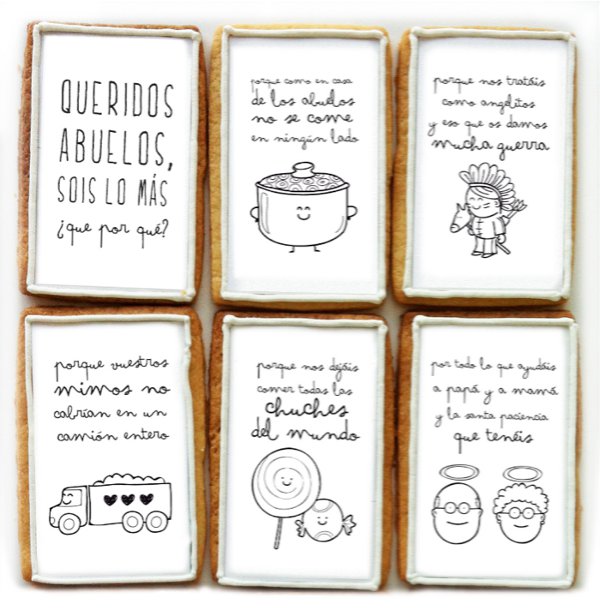 QUERIDOS
ABUELOS,
SOIS LO MÁS
¿que por qué?
porque como en casa
de los abuelos
no se come
en ningún lado
porque nos tratáis
como angelitos
y eso que os damos
mucha guerra
porque vuestros
mimos no
cabrían en un
camión entero
porque nos dejáis
comer todas las
chuches
del mundo
por todo lo que ayudáis
a papá y a mamá
y la santa paciencia
que tenéis